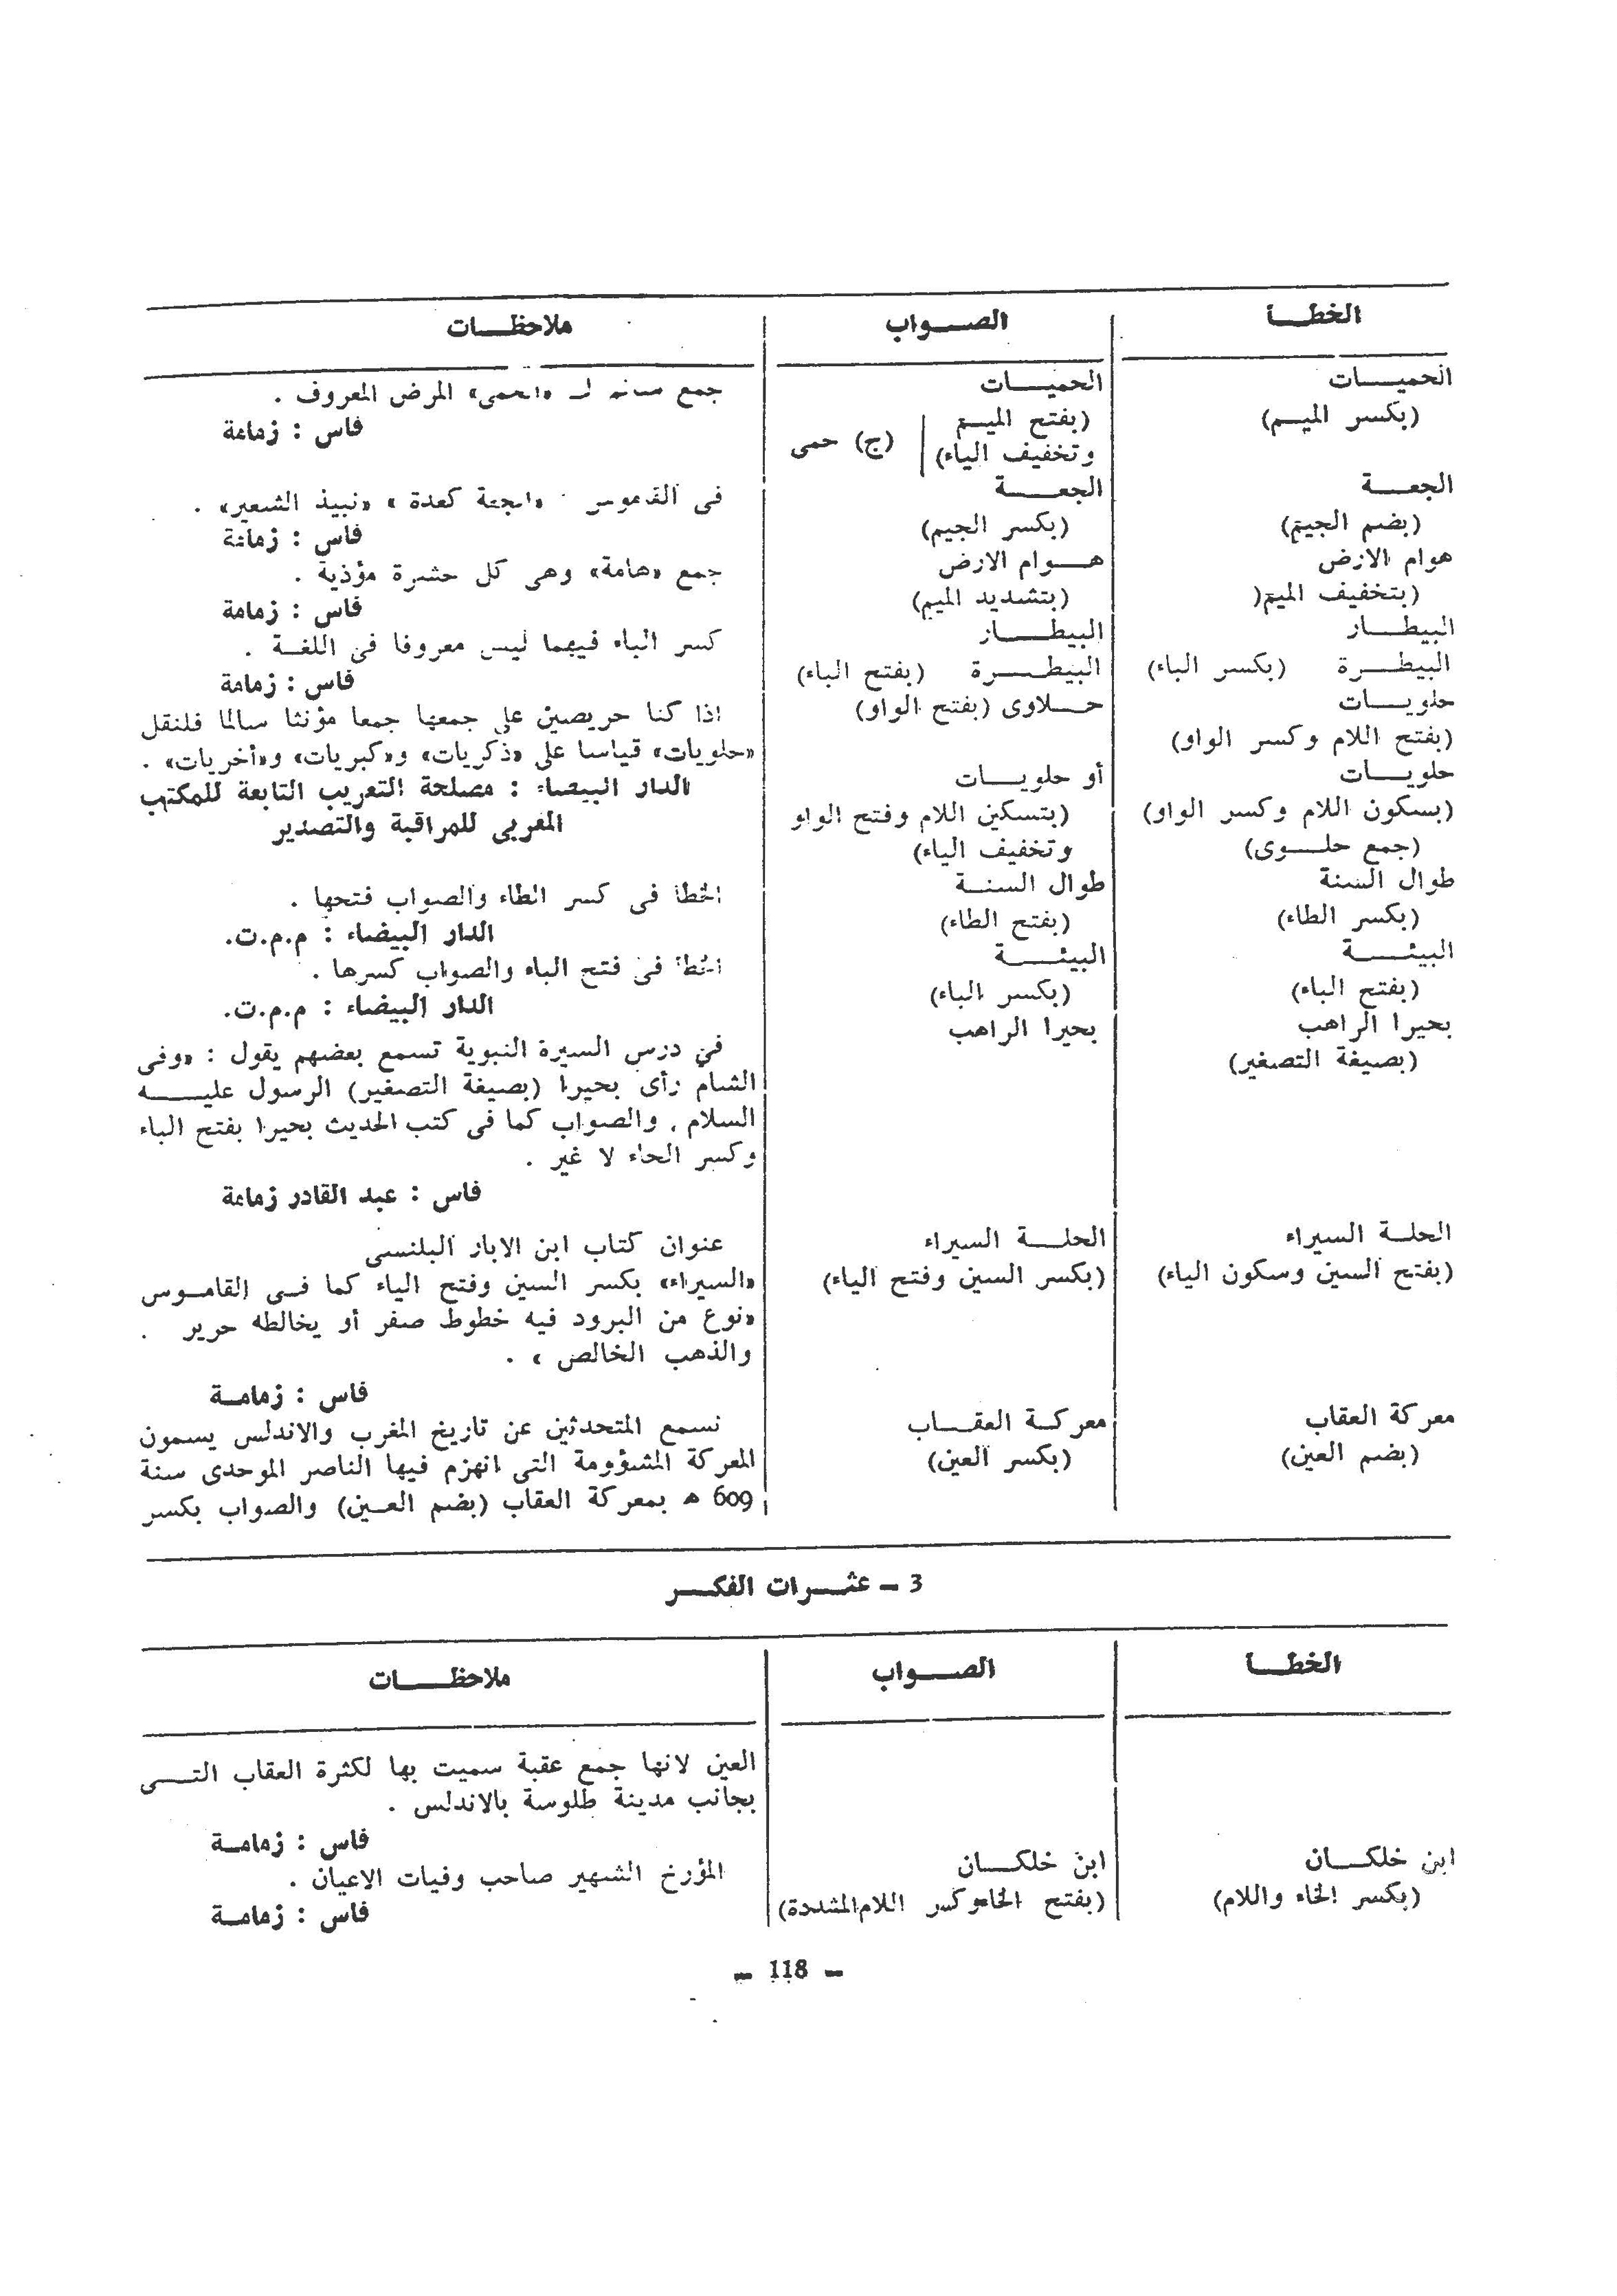 الخطأ
الصواب
ملاحظات
الحميات
(بكسر الميم)
الحميات
(بفتح الميم
وتخفيف الياء)
(ج) حمى
جمع سالم لـ «الحمى» المرض المعروف .
فاس : زمامة
الجعة
(بضم الجيم)
الجعة
(بكسر الجيم)
في القاموس «الجعة كعدة» «نبيذ الشعير» .
فاس : زمامة
هوام الارض
(بتخفيف الميم(
هوام الارض
(بتشديد الميم)
جمع «هامة» وهى كل حشرة مؤذية .
فاس : زمامة
البيطار
البيطرة (بكسر الباء)
البيطار
البيطرة (بفتح الباء)
كسر الباء فيهما ليس معروفا فى اللغة .
فاس : زمامة
حلويات
(بفتح اللام وكسر الواو)
حلويات
(بسكون اللام وكسر الواو)
(جمع حلوى)
حلاوى (بفتح الواو)
أو حلويات
(بتسكين اللام وفتح الواو
وتخفيف الياء)
اذا كنا حريصين على جمعها جمعا مؤنثا سالما فلنقل
«حلويات» قياسا على «ذكريات» و«كبريات» و«أخريات» .
الدار البيضاء : مصلحة التعريب التابعة للمكتب
المغربى للمراقبة والتصدير
طوال السنة
(بكسر الطاء)
طوال السنة
(بفتح الطاء)
الخطأ فى كسر الطاء والصواب فتحها .
الدار البيضاء : م.م.ت.
البيئة
(بفتح الباء)
البيئة
(بكسر الباء)
الخطأ فى فتح الباء والصواب كسرها .
الدار البيضاء : م.م.ت.
بحيرا الراهب
(بصيغة التصغير)
بحيرا الراهب
في درس السيرة النبوية تسمع بعضهم يقول : «وفى
الشام رأى بحيرا (بصيغة التصغير) الرسول عليه
السلام . والصواب كما فى كتب الحديث بحيرا بفتح الباء
وكسر الحاء لا غير .
فاس : عبد القادر زمامة
الحلة السيراء
(بفتح السين وسكون الياء)
الحلة السيراء
(بكسر السين وفتح الياء)
عنوان كتاب ابن الابار البلنسى
«السيراء» بكسر السين وفتح الياء كما فى القاموس
«نوع من البرود فيه خطوط صفر أو يخالطه حرير .
والذهب الخالص » .
فاس : زمامة
معركة العقاب
(بضم العين)
معركة العقاب
(بكسر العين)
نسمع المتحدثين عن تاريخ المغرب والاندلس يسمون
المعركة المشؤومة التى انهزم فيها الناصر الموحدى سنة
609 هـ بمعركة العقاب (بضم العين) والصواب بكسر
3 – عثرات الفكر
الخطأ
الصواب
ملاحظات
العين لانها جمع عقبة سميت بها لكثرة العقاب التى
بجانب مدينة طلوسة بالاندلس .
فاس : زمامة
ابن خلكان
(بكسر الخاء واللام)
ابن خلكان
(بفتح الخاء وكسر اللام المشددة)
المؤرخ الشهير صاحب وفيات الاعيان .
فاس : زمامة
– 118 –